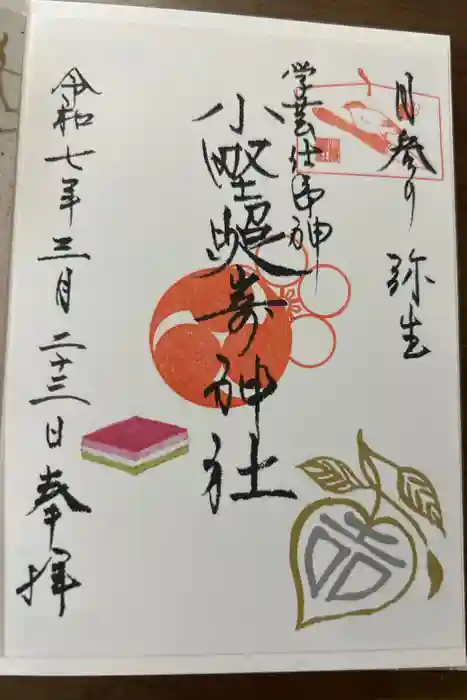 月参り 弥生
学芸仕事神
小野照崎神社
令和七年三月二十三日奉拝